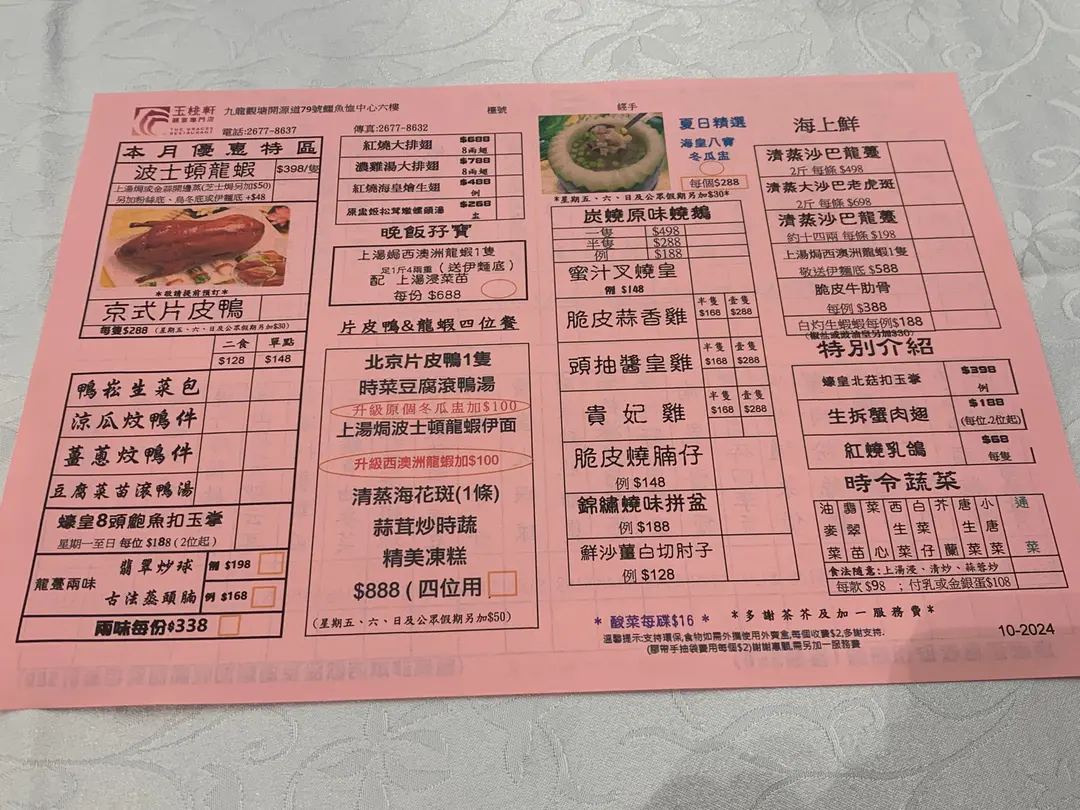 玉桂軒
頤宴專門店
THE GRACES RESTAURANT
九龍觀塘開源道79號鱷魚恤中心六樓
電話:2677-8637
傳真:2677-8632
檯號
經手
本月優惠特區
波士頓龍蝦 $398/隻
上湯焗或金蒜開邊蒸(芝士焗另加$50)
另加粉絲底、烏冬底或伊麵底 +$48
*敬請提前預訂*
京式片皮鴨
每隻$288 (星期五、六、日及公眾假期另加$30)
二食 單點
$128 $148
鴨崧生菜包
涼瓜炆鴨件
薑蔥炆鴨件
豆腐菜苗滾鴨湯
蠔皇8頭鮑魚扣玉掌
星期一至日 每位 $188 (2位起)
龍躉兩味
翡翠炒球 例 $198
古法蒸頭腩 例 $168
兩味每份$338
紅燒大排翅 $688 8兩翅
濃雞湯大排翅 $788 8兩翅
紅燒海皇燴生翅 $488 例
原盅姬松茸燉螺頭湯 $268 盅
晚飯孖寶
上湯焗西澳洲龍蝦1隻
足1斤4兩重 (送伊麵底)
配 上湯浸菜苗
每份 $688
片皮鴨&龍蝦四位餐
北京片皮鴨1隻
時菜豆腐滾鴨湯
升級原個冬瓜盅加$100
上湯焗波士頓龍蝦伊面
升級西澳洲龍蝦加$100
清蒸海花斑(1條)
蒜茸炒時蔬
精美凍糕
$888 (四位用
(星期五、六、日及公眾假期另加$50)
夏日精選
海皇八寶
冬瓜盅
每個$288
*星期五、六、日及公眾假期另加$30*
炭燒原味燒鵝
一隻 $498
半隻 $288
例 $188
蜜汁叉燒皇
例 $148
脆皮蒜香雞 半隻 $168 壹隻 $288
頭抽醬皇雞 半隻 $168 壹隻 $288
貴妃雞 半隻 $168 壹隻 $288
脆皮燒腩仔
例 $148
錦繡燒味拼盆
例 $188
鮮沙薑白切肘子
例 $128
海上鮮
清蒸沙巴龍躉
2斤 每條 $498
清蒸大沙巴老虎斑
2斤 每條 $698
清蒸沙巴龍躉
約十四兩 每條 $198
上湯焗西澳洲龍蝦1隻
敬送伊麵底 $588
脆皮牛肋骨
每例 $388
白灼生蝦蝦每例$188
(椒絲或豉油皇另加$30)
特別介紹
蠔皇北菇扣玉掌 $398 例
生拆蟹肉翅 $188 (每位.2位起)
紅燒乳鴿 $68 每隻
時令蔬菜
油麥菜
翡翠苗
菜心
西生菜
白菜仔
芥蘭
唐生菜
小唐菜
通菜
食法隨意:上湯浸、清炒、蒜蓉炒
每款 $98 ; 付乳或金銀蛋$108
* 酸菜每碟$16 *
*多謝茶芥及加一服務費*
溫馨提示:支持環保,食物如需外攜使用外賣盒,每個收費$2,多謝支持.
(膠帶手抽袋費用每個$2)謝謝惠顧,需另加一服務費
10-2024